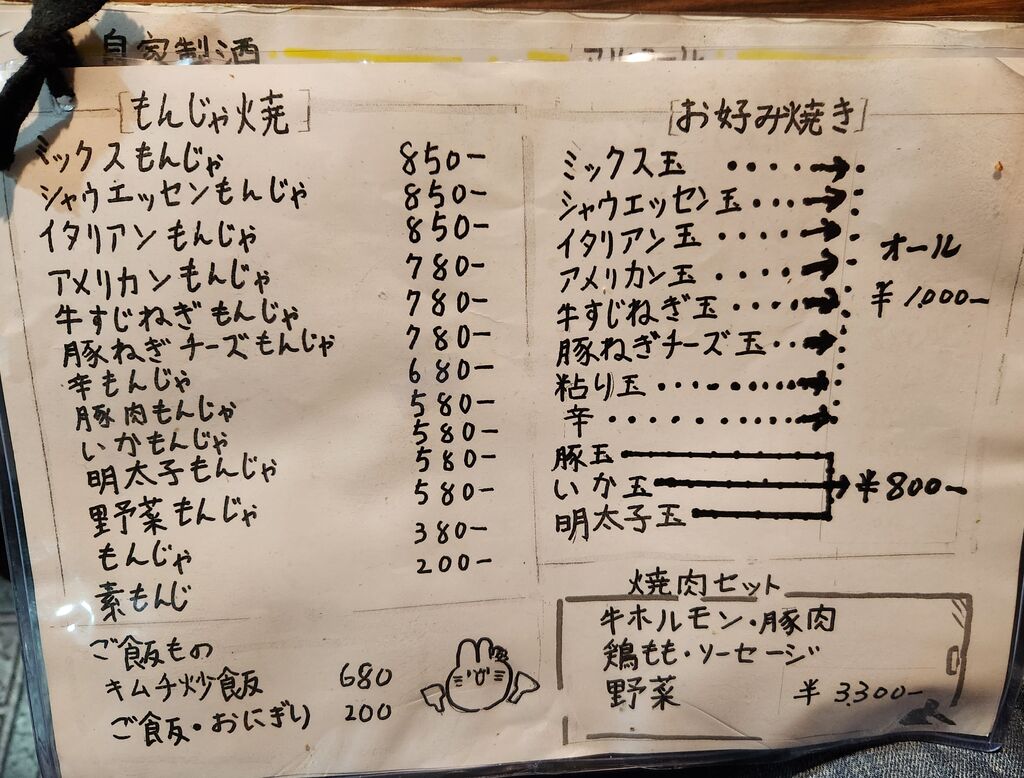 自家製酒
アルコール
[もんじゃ焼]
ミックスもんじゃ 850-
シャウエッセンもんじゃ 850-
イタリアンもんじゃ 850-
アメリカンもんじゃ 780-
牛すじねぎもんじゃ 780-
豚ねぎチーズもんじゃ 780-
辛もんじゃ 680-
豚肉もんじゃ 580-
いかもんじゃ 580-
明太子もんじゃ 580-
野菜もんじゃ 580-
もんじゃ 380-
素もんじ 200-
ご飯もの
キムチ炒飯 680
ご飯・おにぎり 200
[お好み焼き]
ミックス玉
シャウエッセン玉
イタリアン玉
アメリカン玉
牛すじねぎ玉
豚ねぎチーズ玉
粘り玉
辛
オール
¥1,000-
豚玉
いか玉
明太子玉
¥800-
焼肉セット
牛ホルモン・豚肉
鶏もも・ソーセージ
野菜 ¥3,300-